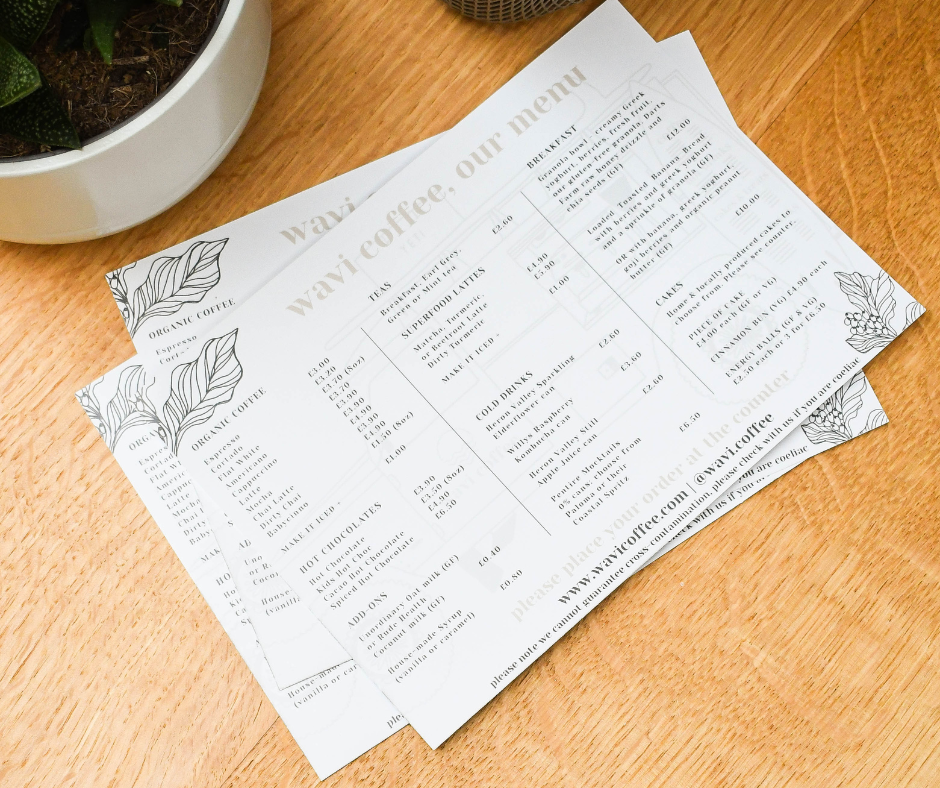 wavi coffee, our menu
ORGANIC COFFEE
Espresso
Cortado
Flat White
Americano
Cappuccino
Latte
Mocha
Chai Latte
Dirty Chai
Babyccino
MAKE IT ICED -
£3.00
£3.20
£3.70 (8oz)
£3.70
£3.90
£3.90
£4.90
£3.90
£4.90
£1.50 (8oz)
£1.00
HOT CHOCOLATES
Hot Chocolate
Kids Hot Choc
Cacao Hot Chocolate
Spiced Hot Chocolate
£3.90
£3.50 (8oz)
£4.90
£6.50
ADD-ONS
Unordinary Oat milk (GF)
or Rude Health
Coconut milk (GF)
£0.40
House-made Syrup
(vanilla or caramel)
£0.80
TEAS
Breakfast, Earl Grey,
Green or Mint tea
£2.60
SUPERFOOD LATTES
Matcha, Turmeric,
or Beetroot Latte
Dirty Turmeric
MAKE IT ICED -
£4.90
£5.90
£1.00
COLD DRINKS
Heron Valley Sparkling
Elderflower can
£2.80
Willys Raspberry
Kombucha can
£3.60
Heron Valley Still
Apple Juice can
£2.60
Pentire Mocktails
0% cans, choose from
Paloma or their
Coastal Spritz
£6.50
BREAKFAST
Granola bowl - creamy Greek
yoghurt, berries, fresh fruit,
our gluten-free granola, Darts
Farm raw honey drizzle and
chia seeds (GF)
£12.00
Loaded Toasted Banana Bread
with berries and greek yoghurt
and a sprinkle of granola (GF)
OR with banana, greek yoghurt,
goji berries and organic peanut
butter (GF)
£10.00
CAKES
Home & locally produced cakes to
choose from. Please see counter.
PIECE OF CAKE
£4.00 each (GF or VG)
CINNAMON BUN (VG) £4.90 each
ENERGY BALLS (GF & VG)
£2.50 each or 3 for £6.50
please place your order at the counter
www.wavicoffee.com | @wavi.coffee
please note we cannot guarantee cross-contamination, please check with us if you are coeliac
wavi
ORGANIC COFFEE
Espresso
House-made
(vanilla or
you are coeliac
check with us if you